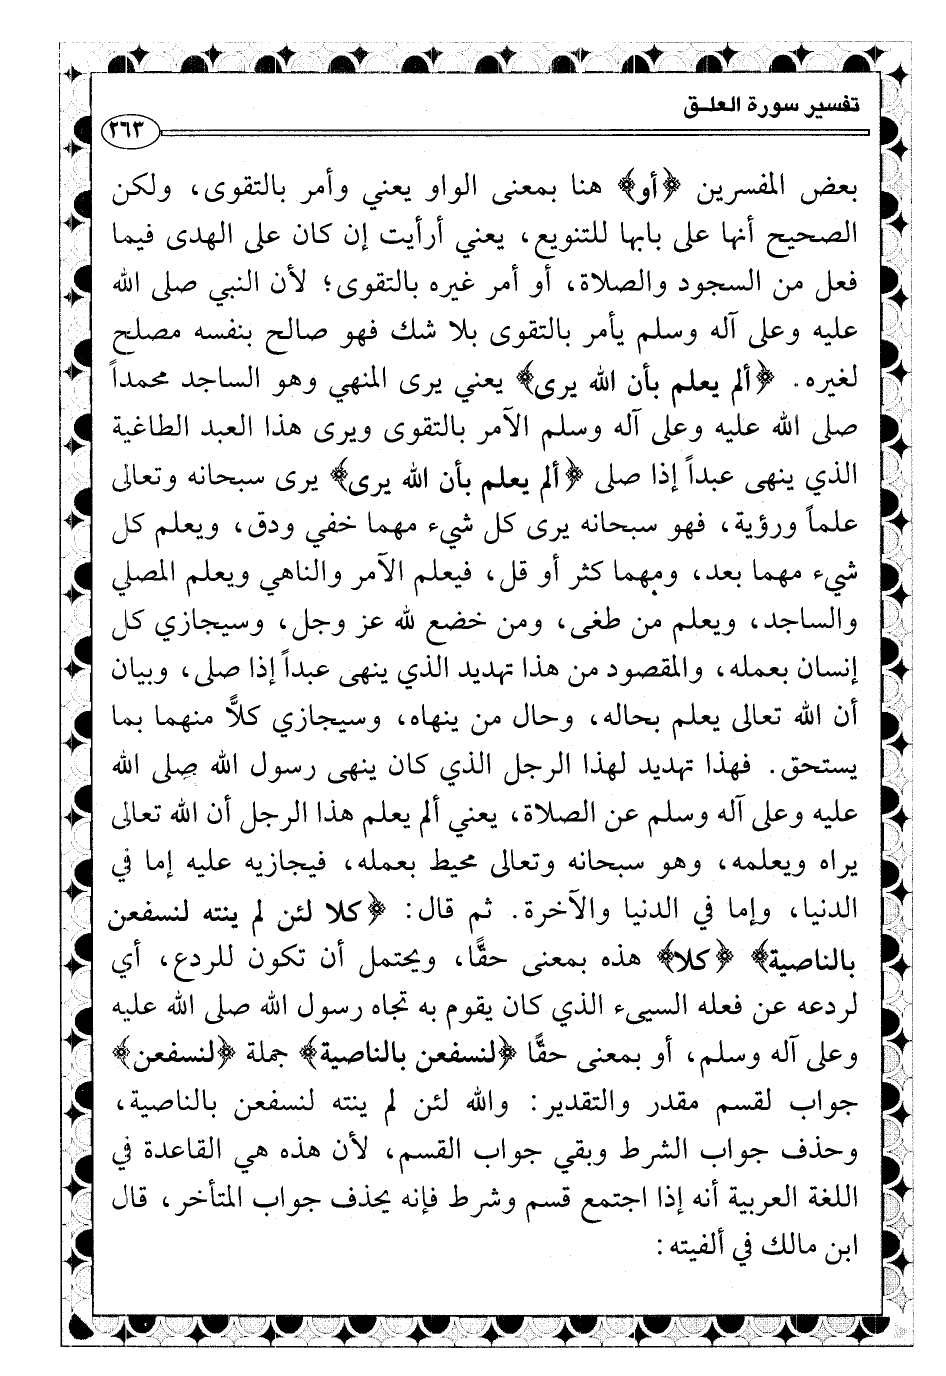 تفسير سورة العلـق
٢٦٣
بعض المفسرين ﴿أو﴾ هنا بمعنى الواو يعني وأمر بالتقوى، ولكن
الصحيح أنها على بابها للتنويع، يعني أرأيت إن كان على الهدى فيما
فعل من السجود والصلاة، أو أمر غيره بالتقوى؛ لأن النبي صلى الله
عليه وعلى آله وسلم يأمر بالتقوى بلا شك فهو صالح بنفسه مصلح
لغيره. ﴿ألم يعلم بأن الله يرى﴾ يعني يرى المنهي وهو الساجد محمداً
صلى الله عليه وعلى آله وسلم الآمر بالتقوى ويرى هذا العبد الطاغية
الذي ينهى عبداً إذا صلى ﴿ألم يعلم بأن الله يرى﴾ يرى سبحانه وتعالى
علماً ورؤية، فهو سبحانه يرى كل شيء مهما خفي ودق، ويعلم كل
شيء مهما بعد، ومهما كثر أو قل، فيعلم الآمر والناهي ويعلم المصلي
والساجد، ويعلم من طغى، ومن خضع لله عز وجل، وسيجازي كل
إنسان بعمله، والمقصود من هذا تهديد الذي ينهى عبداً إذا صلى، وبيان
أن الله تعالى يعلم بحاله، وحال من ينهاه، وسيجازي كلاًّ منهما بما
يستحق. فهذا تهديد لهذا الرجل الذي كان ينهى رسول الله صلى الله
عليه وعلى آله وسلم عن الصلاة، يعني ألم يعلم هذا الرجل أن الله تعالى
يراه ويعلمه، وهو سبحانه وتعالى محيط بعمله، فيجازيه عليه إما في
الدنيا، وإما في الدنيا والآخرة. ثم قال: ﴿كلا لئن لم ينته لنسفعن
بالناصية﴾ ﴿كلا﴾ هذه بمعنى حقًّا، ويحتمل أن تكون للردع، أي
لردعه عن فعله السيىء الذي كان يقوم به تجاه رسول الله صلى الله عليه
وعلى آله وسلم، أو بمعنى حقًّا ﴿لنسفعن بالناصية﴾ جملة ﴿لنسفعن﴾
جواب لقسم مقدر والتقدير: والله لئن لم ينته لنسفعن بالناصية،
وحذف جواب الشرط وبقي جواب القسم، لأن هذه هي القاعدة في
اللغة العربية أنه إذا اجتمع قسم وشرط فإنه يحذف جواب المتأخر، قال
ابن مالك في ألفيته: